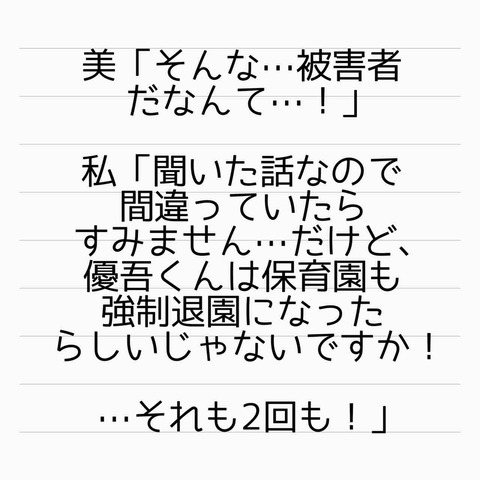 美「そんな…被害者
だなんて…！」
私「聞いた話なので
間違っていたら
すみません…だけど、
優吾くんは保育園も
強制退園になった
らしいじゃないですか！
…それも2回も！」